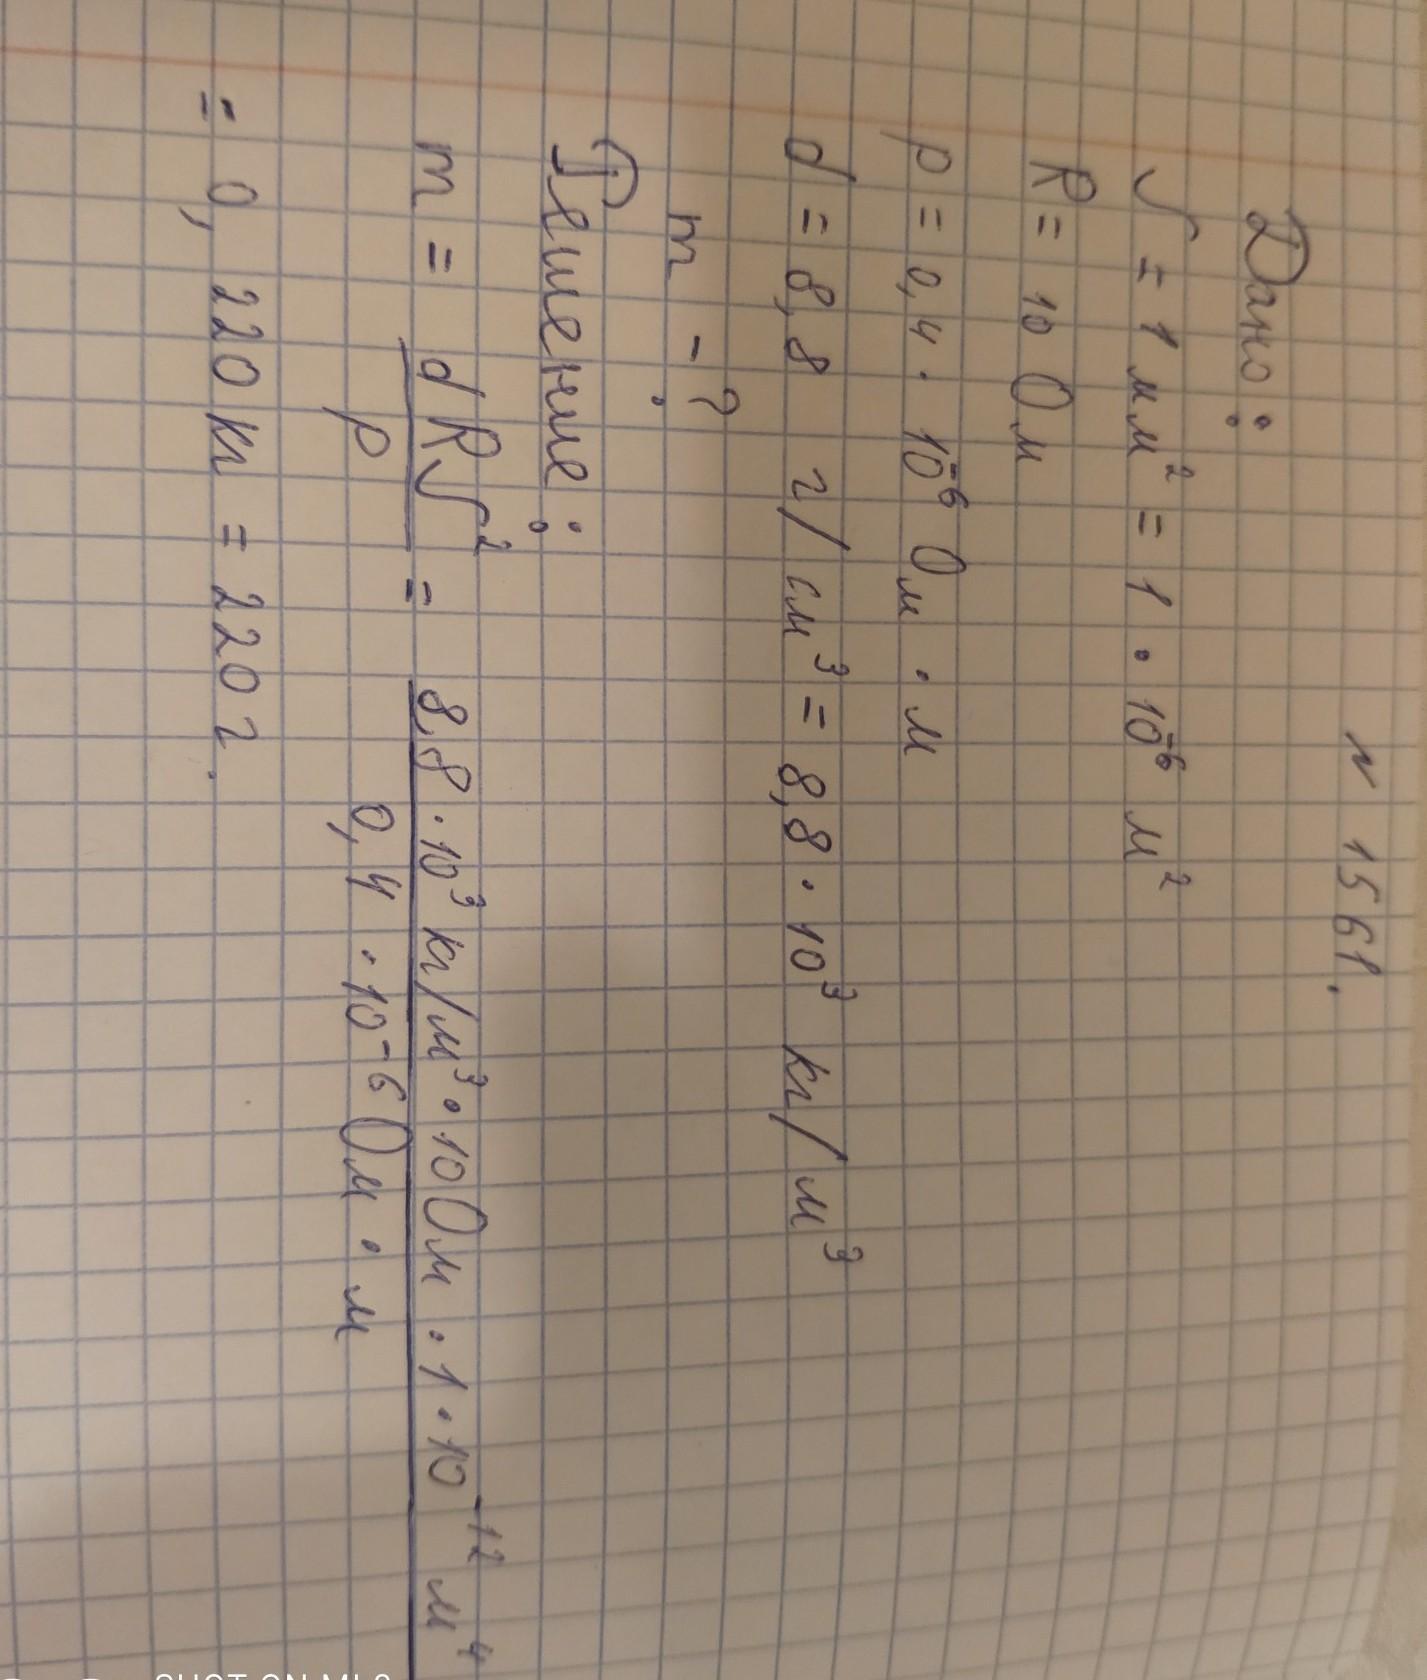 N 1561.
Дано:
S = 1 мм² = 1 · 10⁻⁶ м²
R = 10 Ом
ρ = 0,4 · 10⁻⁶ Ом · м
d = 8,8 г/см³ = 8,8 · 10³ кг/м³
m - ?
Решение:
m = dRS²/ρ = 8,8 · 10³ кг/м³ · 10 Ом · 1 · 10⁻¹² м⁴ / 0,4 · 10⁻⁶ Ом · м
= 0,220 кг = 220 г.